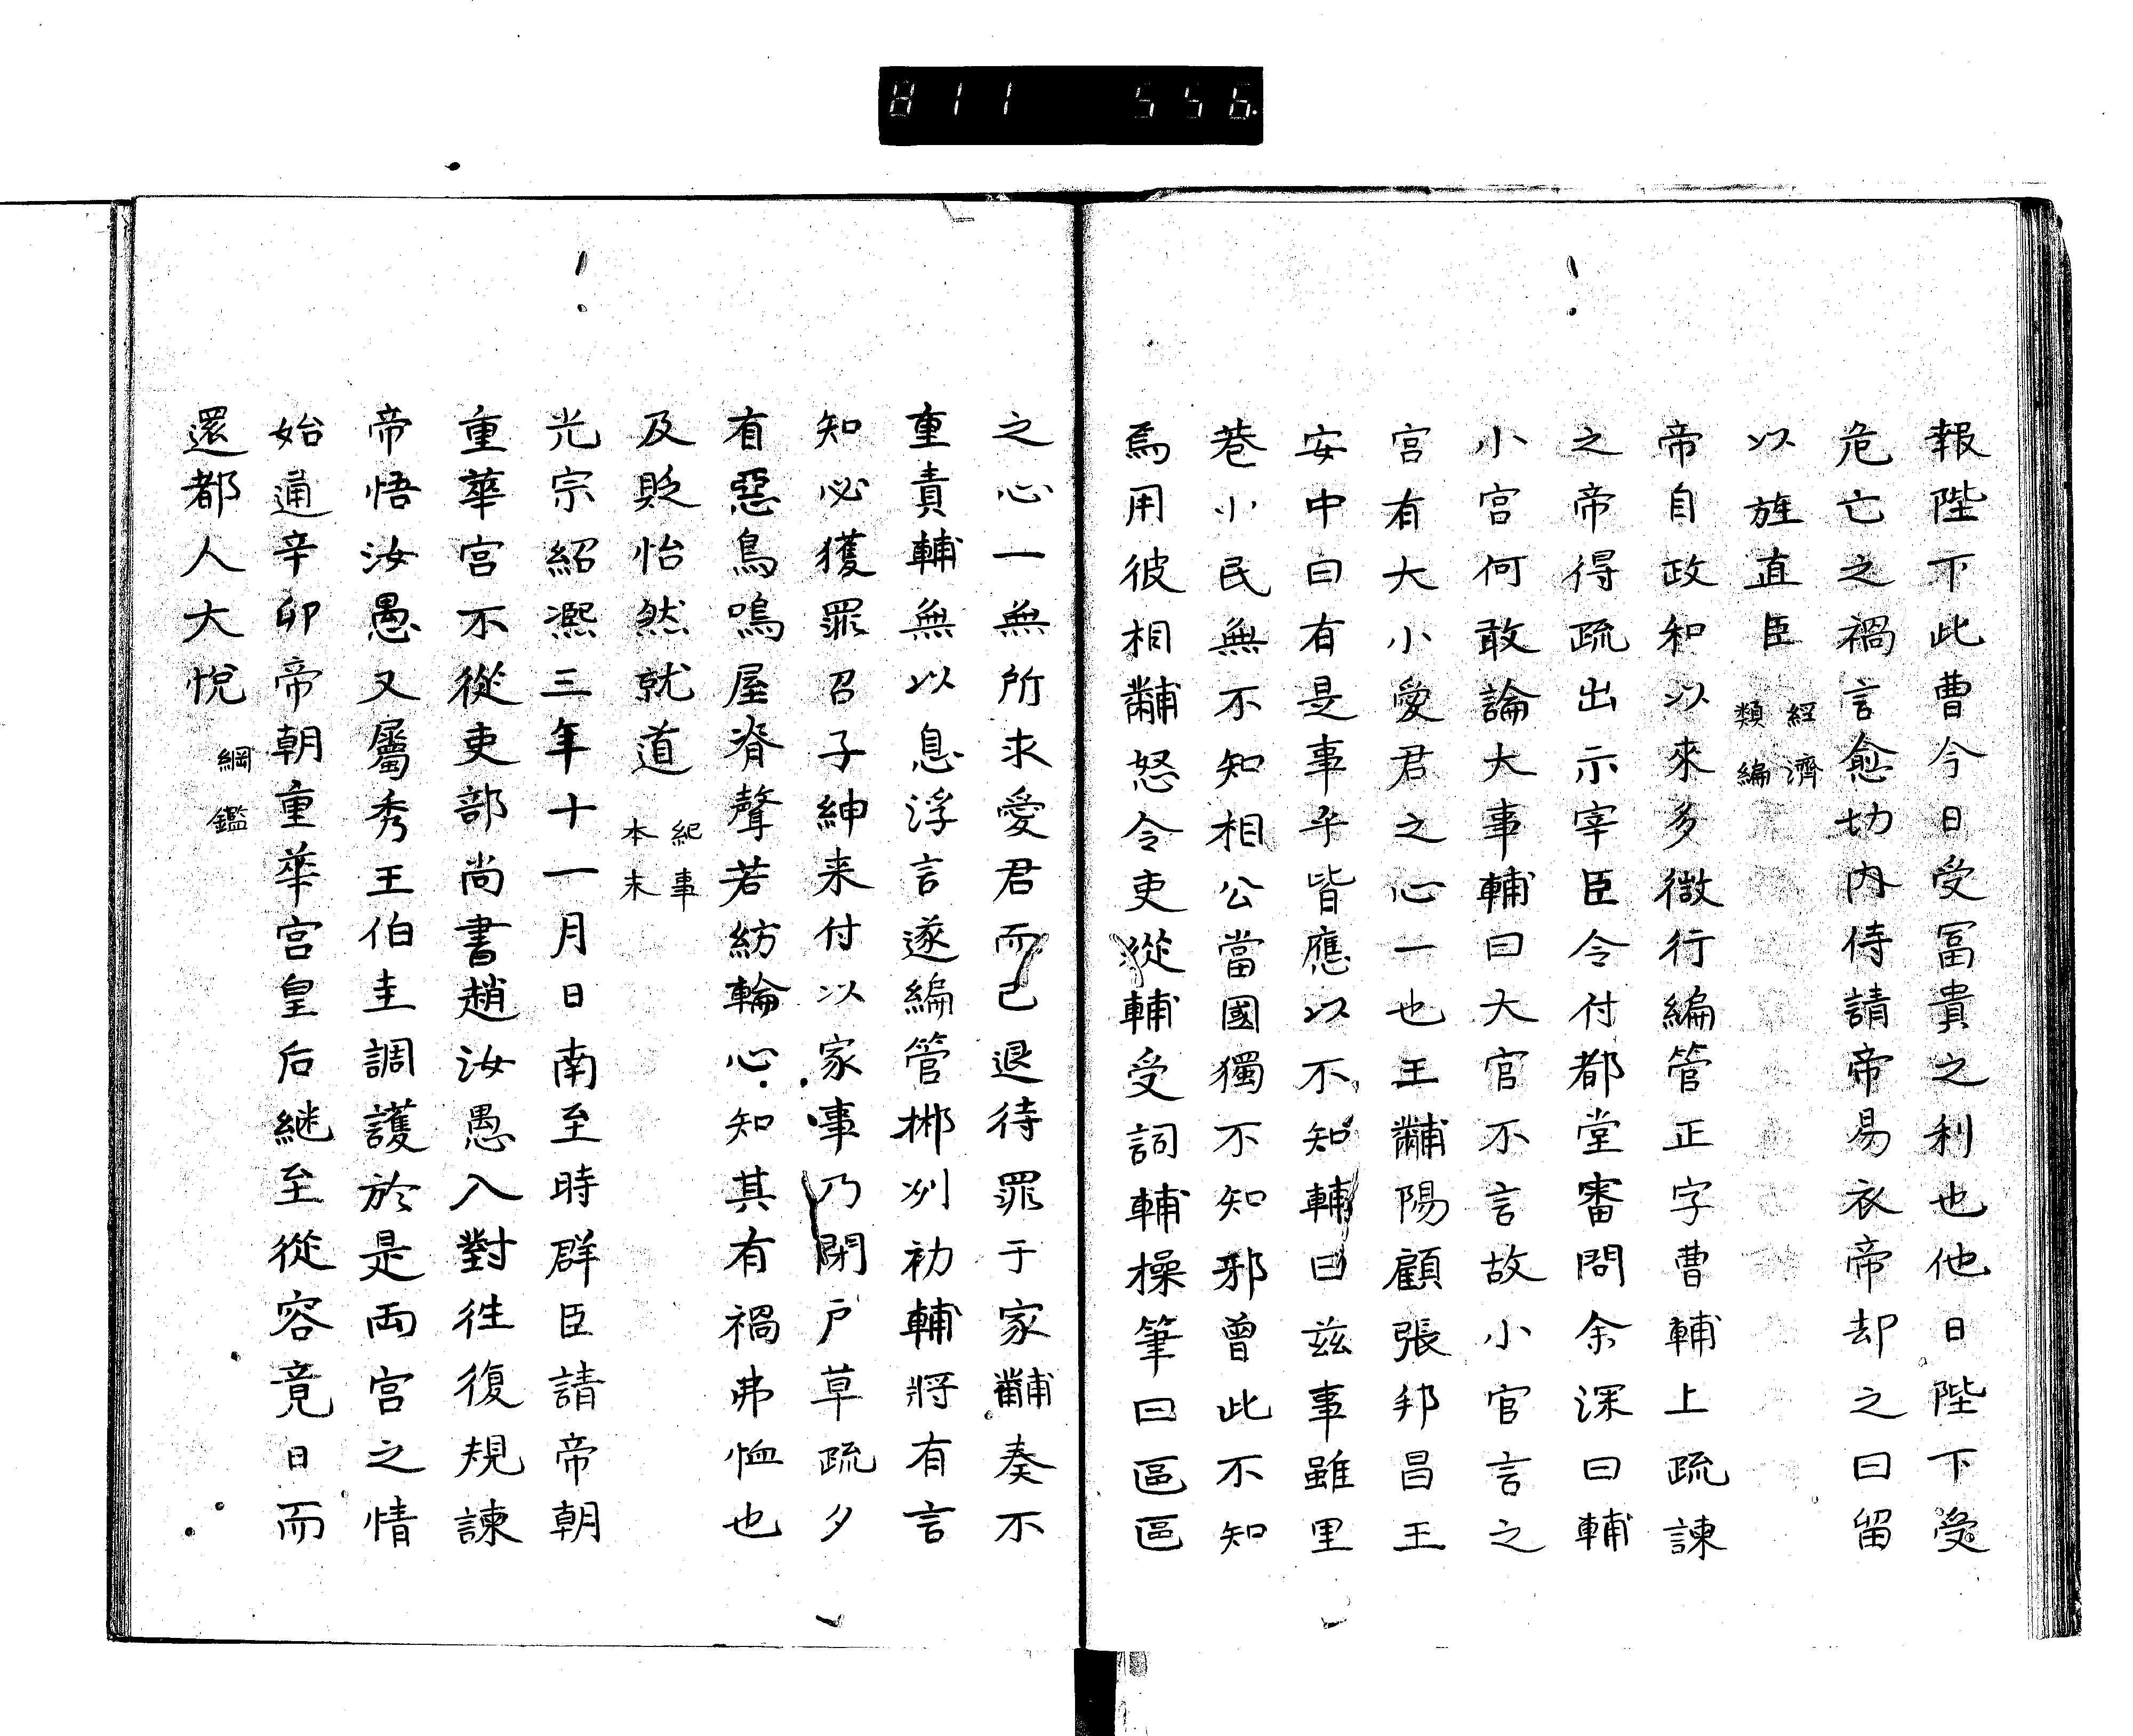 811 556.
報陛下此曹今日受冨貴之利也他日陛下受
危亡之禍言愈切内侍請帝易衣帝却之曰留
以旌直臣 經濟類編
帝自政和以來多微行編管正字曹輔上疏諫
之帝得疏出示宰臣令付都堂審問余深曰輔
小官何敢論大事輔曰大官不言故小官言之
官有大小愛君之心一也王黼陽顧張邦昌王
安中曰有是事乎皆應以不知輔曰茲事雖里
巷小民無不知相公當國獨不知邪曾此不知
焉用彼相黼怒令吏從輔受詞輔操筆曰區區
之心一無所求愛君而已退待罪于家黼奏不
重責輔無以息浮言遂編管郴州初輔將有言
知必獲罪召子紳来付以家事乃閉戸草疏夕
有惡鳥鳴屋脊聲若紡輪心知其有禍弗恤也
及貶怡然就道 紀事本末
光宗紹凞三年十一月日南至時群臣請帝朝
重華宮不從吏部尚書趙汝愚入對往復規諫
帝悟汝愚又屬秀王伯圭調護於是両宮之情
始通辛卯帝朝重華宮皇后継至從容竟日而
還都人大悅 綱鑑